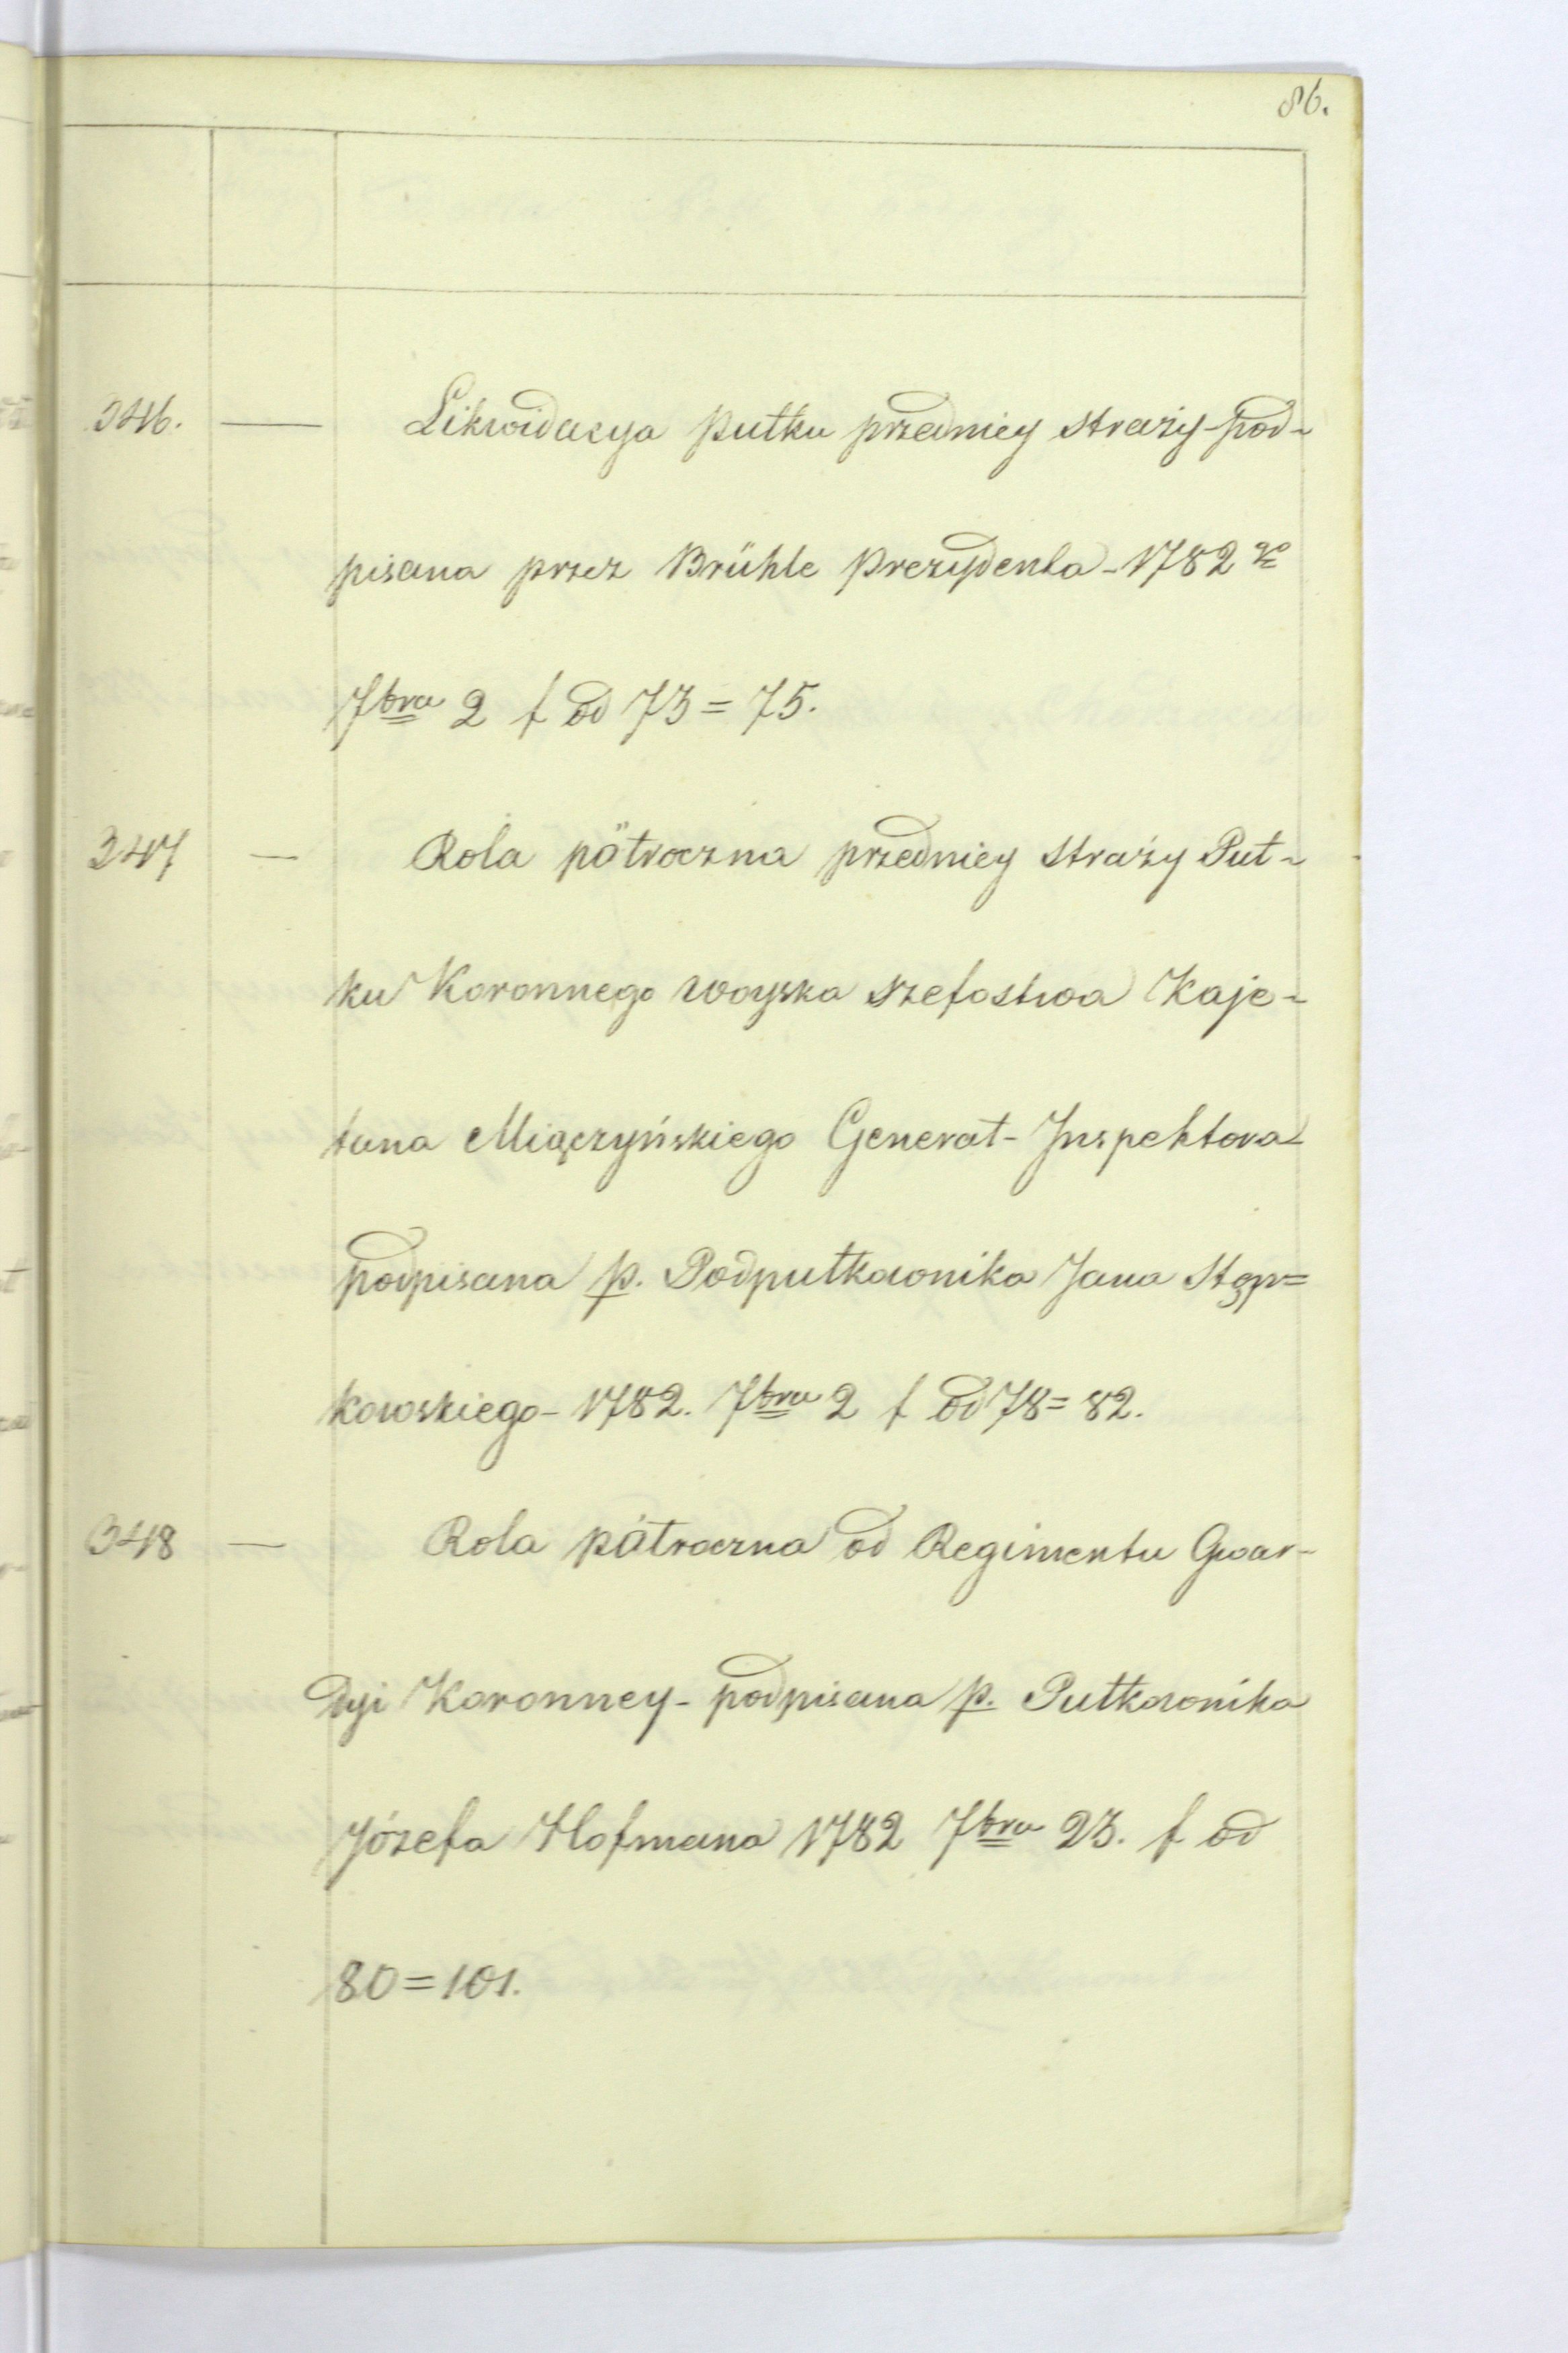 86.
346. — Likwidacya Pułku przedniey straży pod-
pisana przez Brühle Prezydenta - 1782 ro
7bra 2 f od 73 = 75.
347 — Rola półroczna przedniey straży Puł-
ku Koronnego woyska szefostwa Kaje-
tana Miączyńskiego Generał-Inspektora
podpisana p. Podpułkownika Jana Stęp=
kowskiego - 1782. 7bra 2 f od 78 = 82.
348 — Rola półroczna od Regimentu Gwar-
dyi Koronney - podpisana p. Pułkownika
Józefa Hofmana 1782 7bra 23. f od
80 = 101.